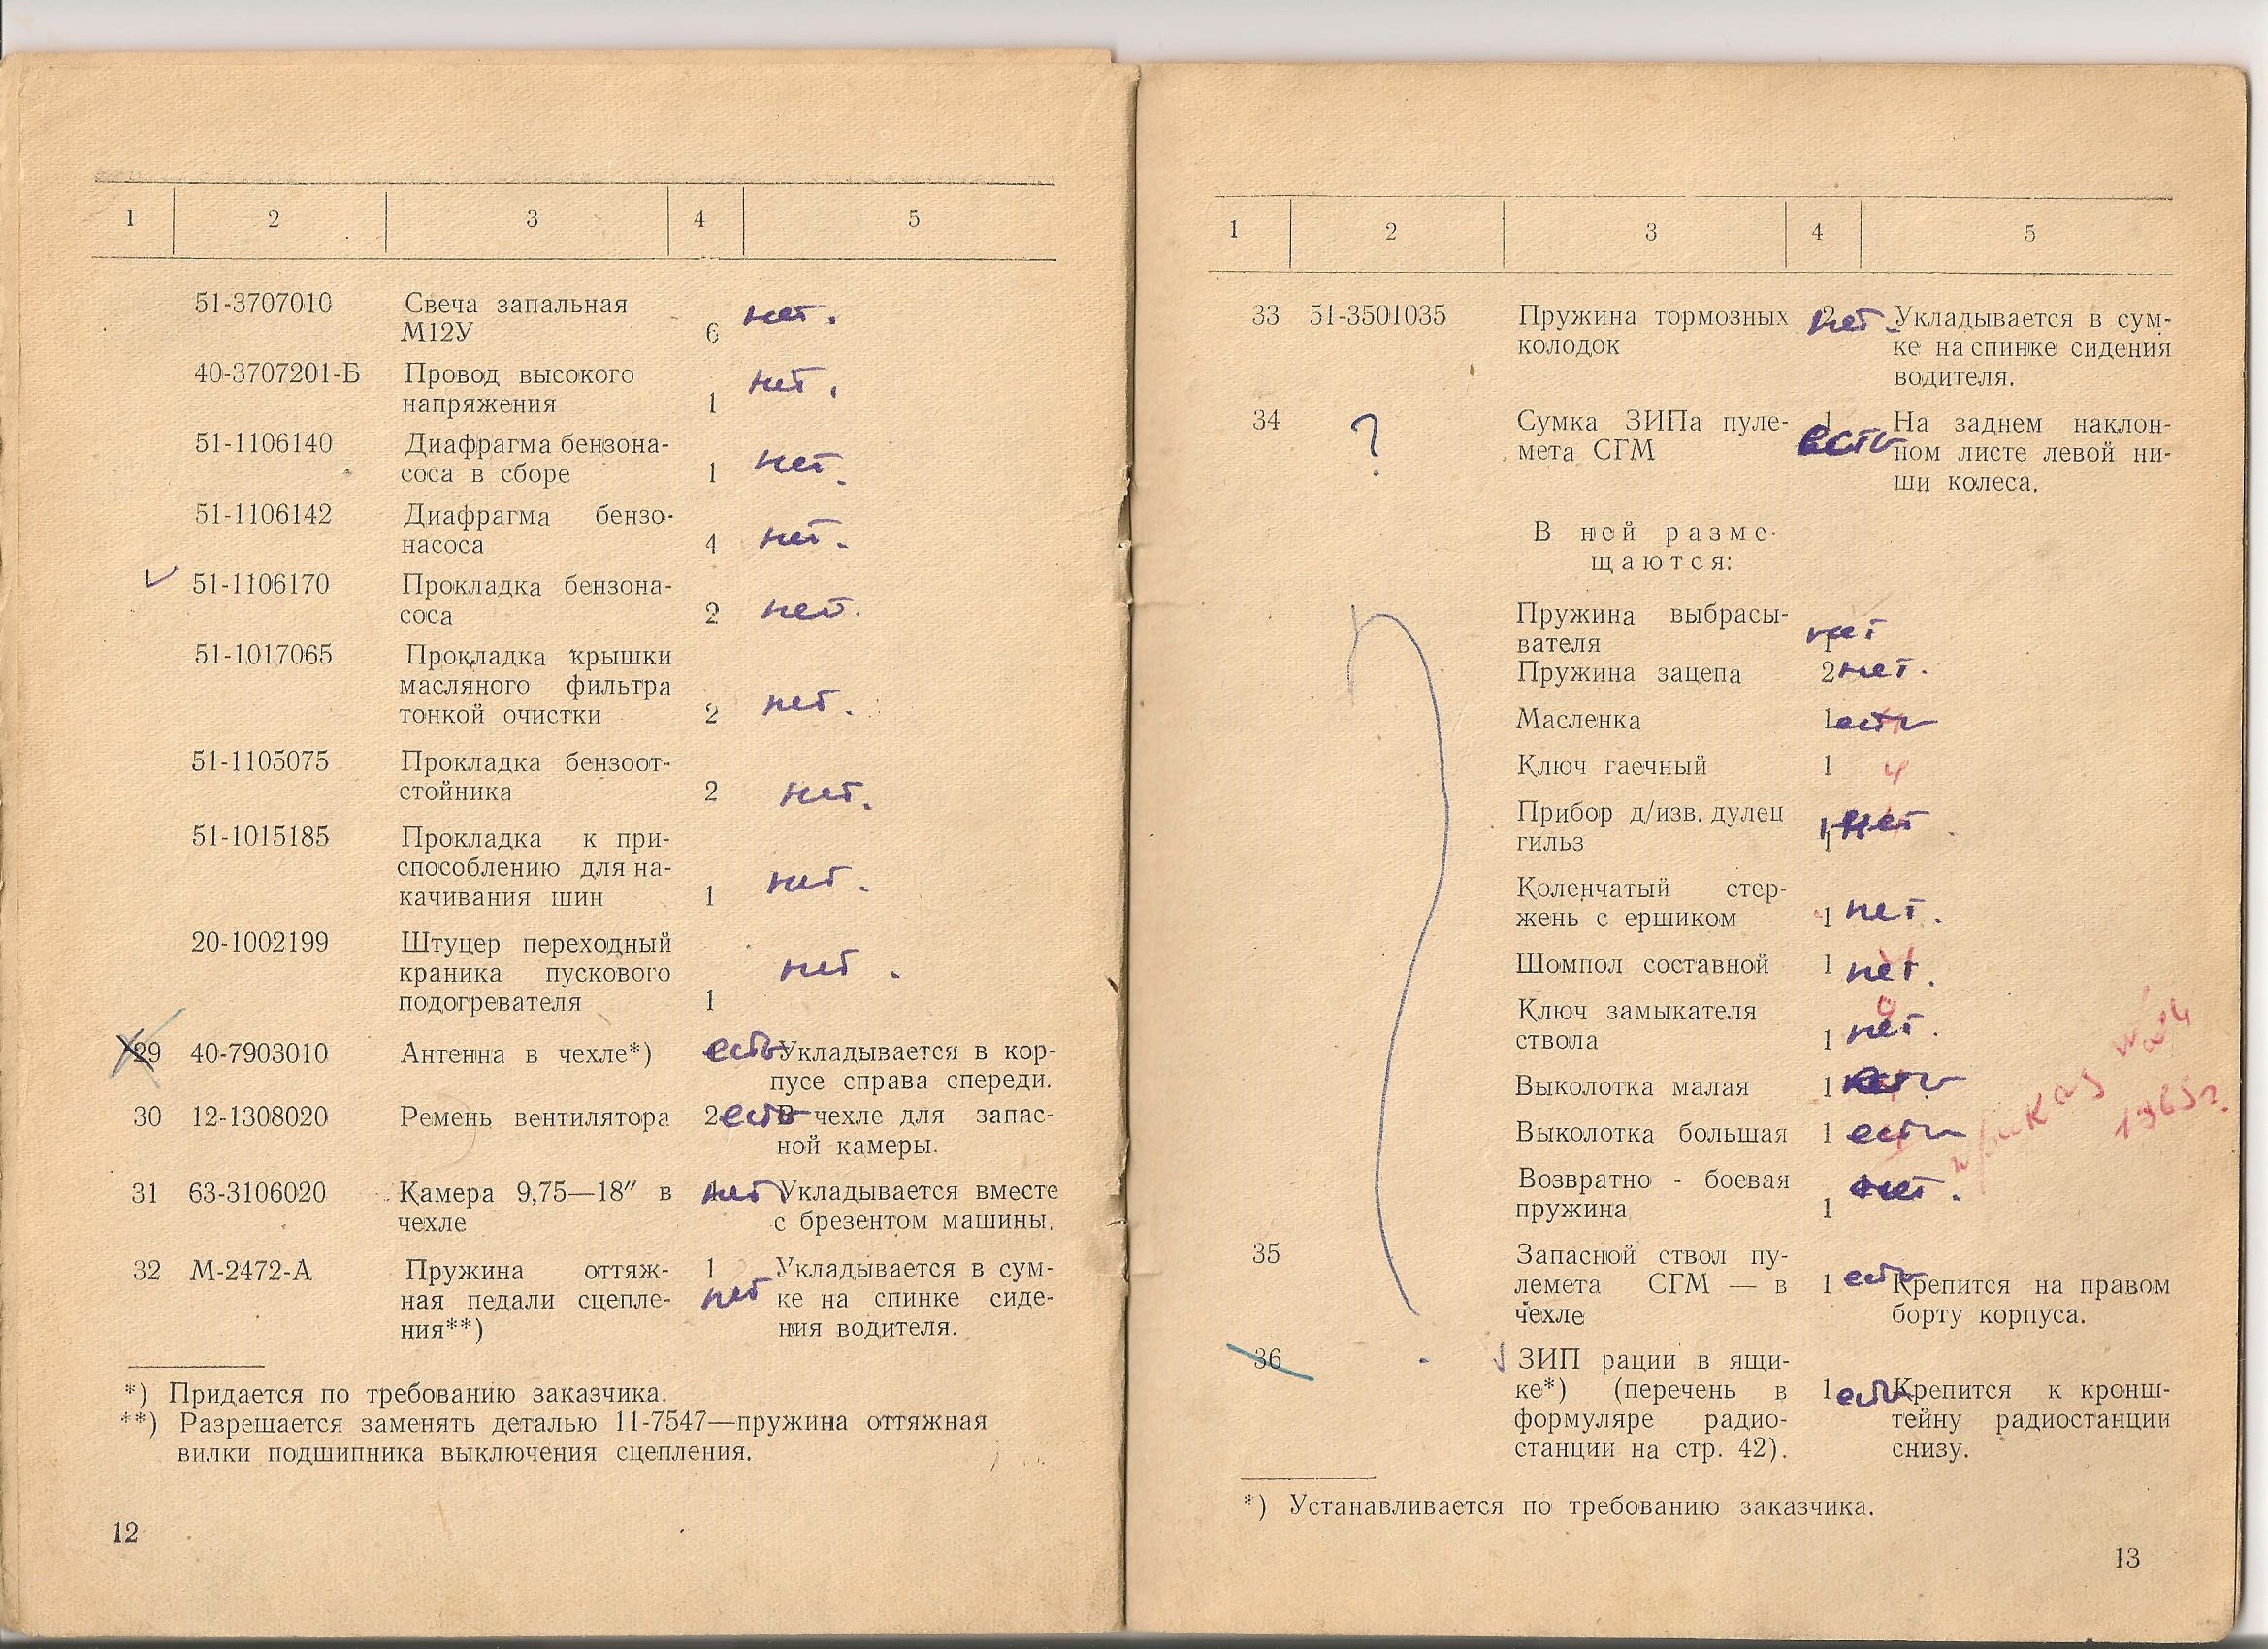 1 2 3 4 5
51-3707010 Свеча запальная
М12У 6 нет.
40-3707201-Б Провод высокого
напряжения 1 нет.
51-1106140 Диафрагма бензона-
соса в сборе 1 нет.
51-1106142 Диафрагма бензо-
насоса 4 нет.
✓ 51-1106170 Прокладка бензона-
соса 2 нет.
51-1017065 Прокладка крышки
масляного фильтра
тонкой очистки 2 нет.
51-1105075 Прокладка бензоот-
стойника 2 нет.
51-1015185 Прокладка к при-
способлению для на-
качивания шин 1 нет.
20-1002199 Штуцер переходный
краника пускового
подогревателя 1 нет.
29 40-7903010 Антенна в чехле*) есть Укладывается в кор-
пусе справа спереди.
30 12-1308020 Ремень вентилятора 2 есть В чехле для запас-
ной камеры.
31 63-3106020 Камера 9,75—18″ в нет Укладывается вместе
чехле с брезентом машины.
32 М-2472-А Пружина оттяж- 1 Укладывается в сум-
ная педали сцепле- нет ке на спинке сиде-
ния**) ния водителя.
*) Придается по требованию заказчика.
**) Разрешается заменять деталью 11-7547—пружина оттяжная
вилки подшипника выключения сцепления.
12
1 2 3 4 5
33 51-3501035 Пружина тормозных 2 нет. Укладывается в сум-
колодок ке на спинке сидения
водителя.
34 ? Сумка ЗИПа пуле- 1 есть На заднем наклон-
мета СГМ ном листе левой ни-
ши колеса.
В ней разме-
щаются:
Пружина выбрасы-
вателя 1 нет
Пружина зацепа 2 нет.
Масленка 1 есть
Ключ гаечный 1
Прибор д/изв. дулец
гильз 1 нет.
Коленчатый стер-
жень с ершиком 1 нет.
Шомпол составной 1 нет.
Ключ замыкателя
ствола 1 нет.
Выколотка малая 1 есть
Выколотка большая 1 есть
Возвратно - боевая
пружина 1 нет.
приказ № 24
1965г.
35 Запасной ствол пу-
лемета СГМ — в 1 есть Крепится на правом
чехле борту корпуса.
36 ✓ ЗИП рации в ящи-
ке*) (перечень в 1 есть Крепится к кронш-
формуляре радио- тейну радиостанции
станции на стр. 42). снизу.
*) Устанавливается по требованию заказчика.
13